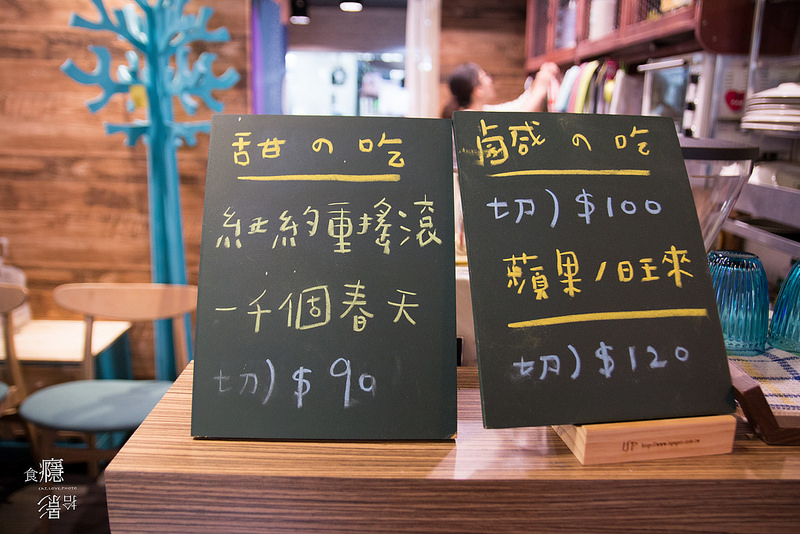 甜の吃
紐約重搖滾
一千個春天
切) $90
鹵咸の吃
切) $100
蘋果/旺來
切) $120
UP
食癮
EAT.LOVE.PHOTO
拾影